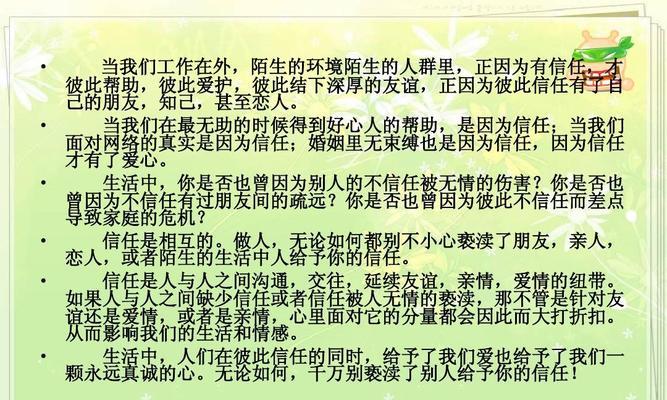 • 当我们工作在外，陌生的环境陌生的人群里，正因为有信任，才
彼此帮助，彼此爱护，彼此结下深厚的友谊，正因为彼此信任有了自
己的朋友，知己，甚至恋人。
• 当我们在最无助的时候得到好心人的帮助，是因为信任；当我们
面对网络的真实是因为信任；婚姻里无束缚也是因为信任，因为信任
才有了爱心。
• 生活中，你是否也曾因为别人的不信任被无情的伤害？你是否也
曾因为不信任有过朋友间的疏远？你是否也曾因为彼此不信任而差点
导致家庭的危机？
• 信任是相互的。做人，无论如何都别不小心亵渎了朋友，亲人，
恋人，或者陌生的生活中人给予你的信任。
• 信任是人与人之间沟通，交往，延续友谊，亲情，爱情的纽带。
如果人与人之间缺少信任或者信任被人无情的亵渎，那不管是针对友
谊还是爱情，或者是亲情，心里面对它的分量都会因此而大打折扣。
从而影响我们的生活和情感。
• 生活中，人们在彼此信任的同时，给予了我们爱也给予了我们一
颗永远真诚的心。无论如何，千万别亵渎了别人给予你的信任！